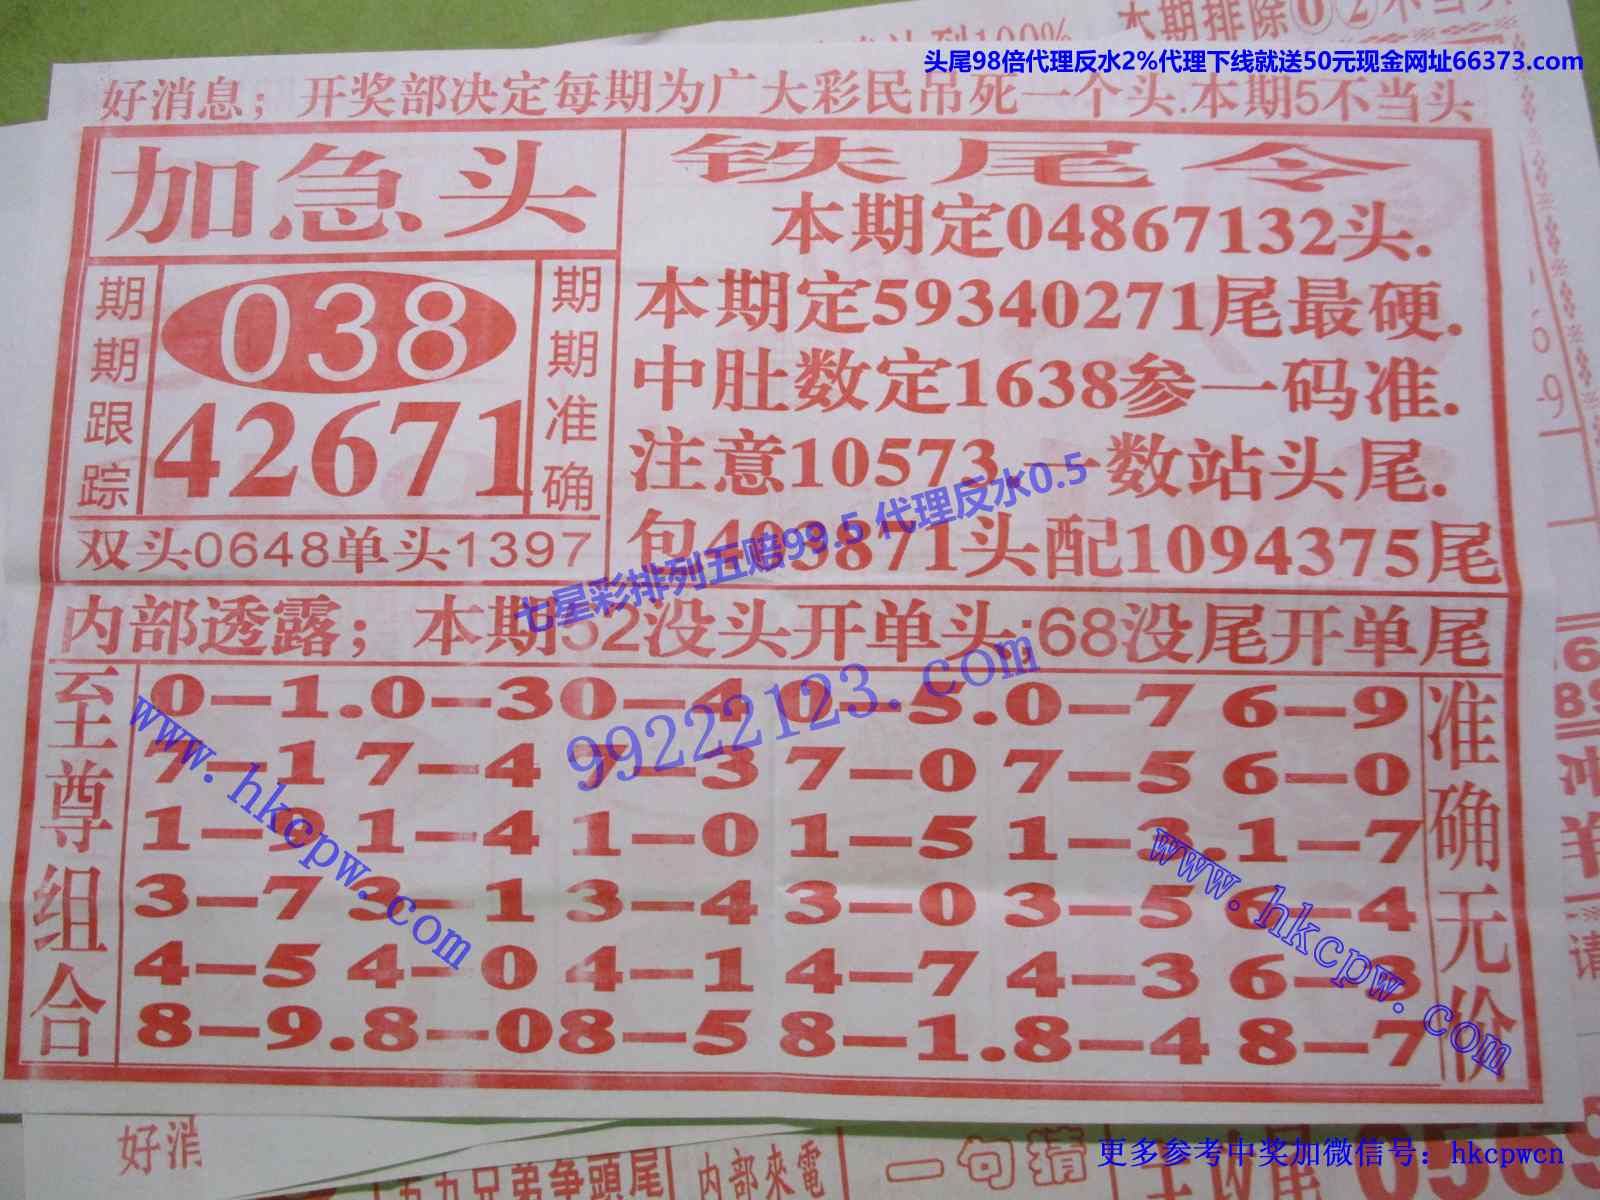 本期排除02不当头
头尾98倍代理反水2%代理下线就送50元现金网址66373.com
好消息；开奖部决定每期为广大彩民吊死一个头.本期5不当头
加急头
期期跟踪
038
42671
期期准确
双头0648单头1397
铁尾令
本期定04867132头.
本期定59340271尾最硬.
中肚数定1638参一码准.
注意10573.一数站头尾.
包403871头配1094375尾
七星彩排列五赔99.5 代理反水0.5
内部透露；本期52没头开单头;68没尾开单尾
99222123.com
至尊组合
0—1.0—30—4 0—5.0—7 6—9
7—1 7—4 7—3 7—0 7—5 6—0
1—9 1—4 1—0 1—5 1—3.1—7
3—7 3—1 3—4 3—0 3—5 6—4
4—5 4—0 4—1 4—7 4—3 6—3
8—9.8—08—5 8—1.8—4 8—7
准确无价
www.hkcpw.com
www.hkcpw.com
好消
五九兄弟争頭尾
内部來電
一句猜
更多参考中奖加微信号：hkcpwcn